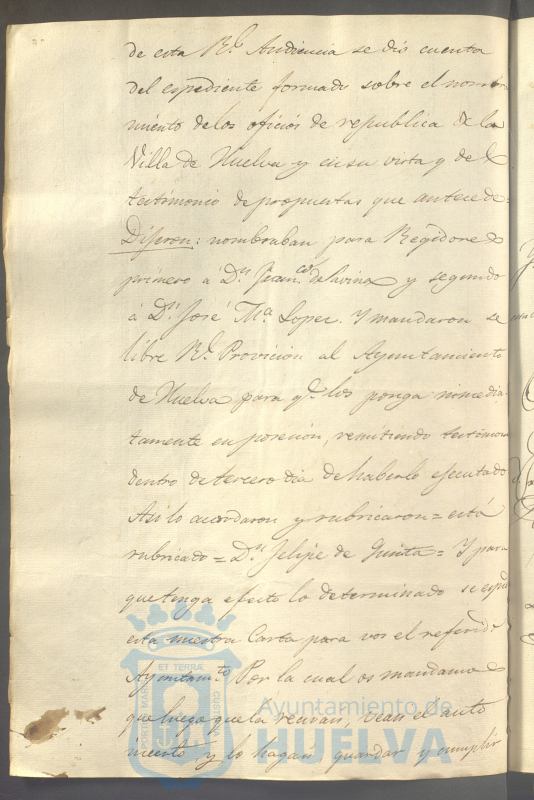 de esta Rl. Audiencia se dió cuenta
del espediente formado sobre el nombra
miento de los oficios de republica de la
Villa de Huelva y en su vista y del
testimonio de propuestas que antecede=
Dijeron: nombraban para Regidores
primero á Dn. Franco. de la y segundo
á Dn. José Ma. Lopez. Y mandaron se
libre Rl. Provicion al Ayuntamiento
de Huelva para qe. los ponga inmedia
tamente en posecion, remitiendo testimonio
dentro de tercero dia de haberlo efecutado
Asi lo acordaron y rubricaron = está
rubricado = Dn. Felipe de = Y para
que tenga efecto lo determinado se espide
esta nuestra Carta para vos el referido
Ayuntamto. Por la cual os mandamos
que luego que la recivais, veais el auto
incerto y lo hagais guardar y cumplir
PORTUS MARIS ET TERRÆ CUSTODIA
Ayuntamiento de
HUELVA